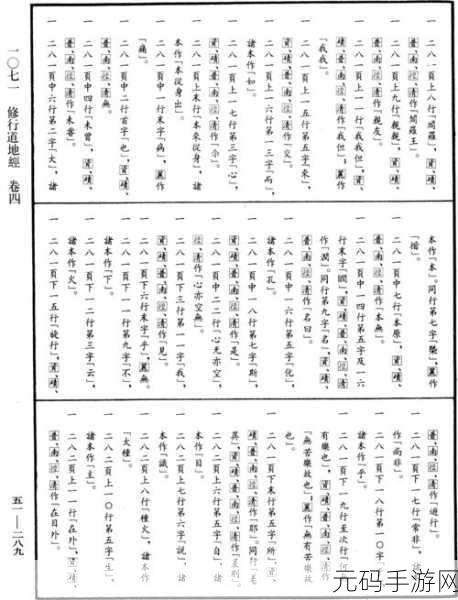 一〇七一 修行道地經 卷四
一 二八一頁上八行「閻羅」，資、磧、
普、南、徑、清作「閻羅王」。
一 二八一頁上九行「親親」，資、磧、
普、南、徑、清作「親友」。
一 二八一頁上一一行「我我但」，資、
磧、普、南、徑、清作「我但」，麗作
「我我」。
一 二八一頁上一五行第五字「來」，
普、南、徑、清作「交」。
一 二八一頁上一六行第一三字「而」，
諸本作「如」。
一 二八一頁上一七行第三字「心」，
一 二八一頁上末行「本來從身」，諸
本作「本從身出」。
一 二八一頁中一行末字「病」，麗作
「痛」。
一 二八一頁中二行首字「也」，資、磧、
普、南、徑、清無。
一 二八一頁中四行「未曾」，資、磧、
普、南、徑、清作「未嘗」。
一 二八一頁中六行第二字「大」，諸
本作「本」。同行第七字
一 二八一頁中七行「本原」，資、磧、
普、南、徑、清作「本無」。
一 二八一頁中一四行第五字及一六
行末字「閏」，資、磧、普、南、徑、清
作「潤」。同行第九字「名」，資、磧、
普、南、徑、清作「名曰」。
一 二八一頁中一六行第五字「化」，
諸本作「孔」。
一 二八一頁中一八行第七字「斯」，
資、磧、普、南、徑、清作「是」。
一 二八一頁中二二行「心無亦空」，
徑、清作「心亦空無」。
一 二八一頁下三行第一字「我」，
資、磧、普、南、徑、清作「見」。
一 二八一頁下六行末字「乎」，麗無。
一 二八一頁下一一行第九字「不」，
諸本作「下」。
一 二八一頁下一二行第三字「云」，
諸本作「火」。
一 二八一頁下一五行「旋行」，資、磧、
普、南、徑、清作「遊行」。
一 二八一頁下一七行「常非」，諸
作「尚非」。
一 二八一頁下一八行第一〇字
諸本作「乎」。
一 二八一頁下一九行至次行「何
有樂也」，資、磧、普、南、徑、清作
「無苦樂故也」，麗作「無有苦樂故
也」。
一 二八一頁下末行第五字「所」，資、
磧、普、南、徑、清作「那」。同行「差
異」，資、磧、普、南、徑、清作「差別」。
一 二八二頁上六行第五字「自」，諸
本作「目」。
一 二八二頁上七行第六字「說」，諸
本作「識」。
一 二八二頁上八行「種火」，諸本作
「火種」。
一 二八二頁上一〇行第五字「生」，
諸本作「主」。
一 二八二頁上一一行「在外」，資、磧、
普、南、徑、清作「在目外」。
五一—二八九
元码手游网